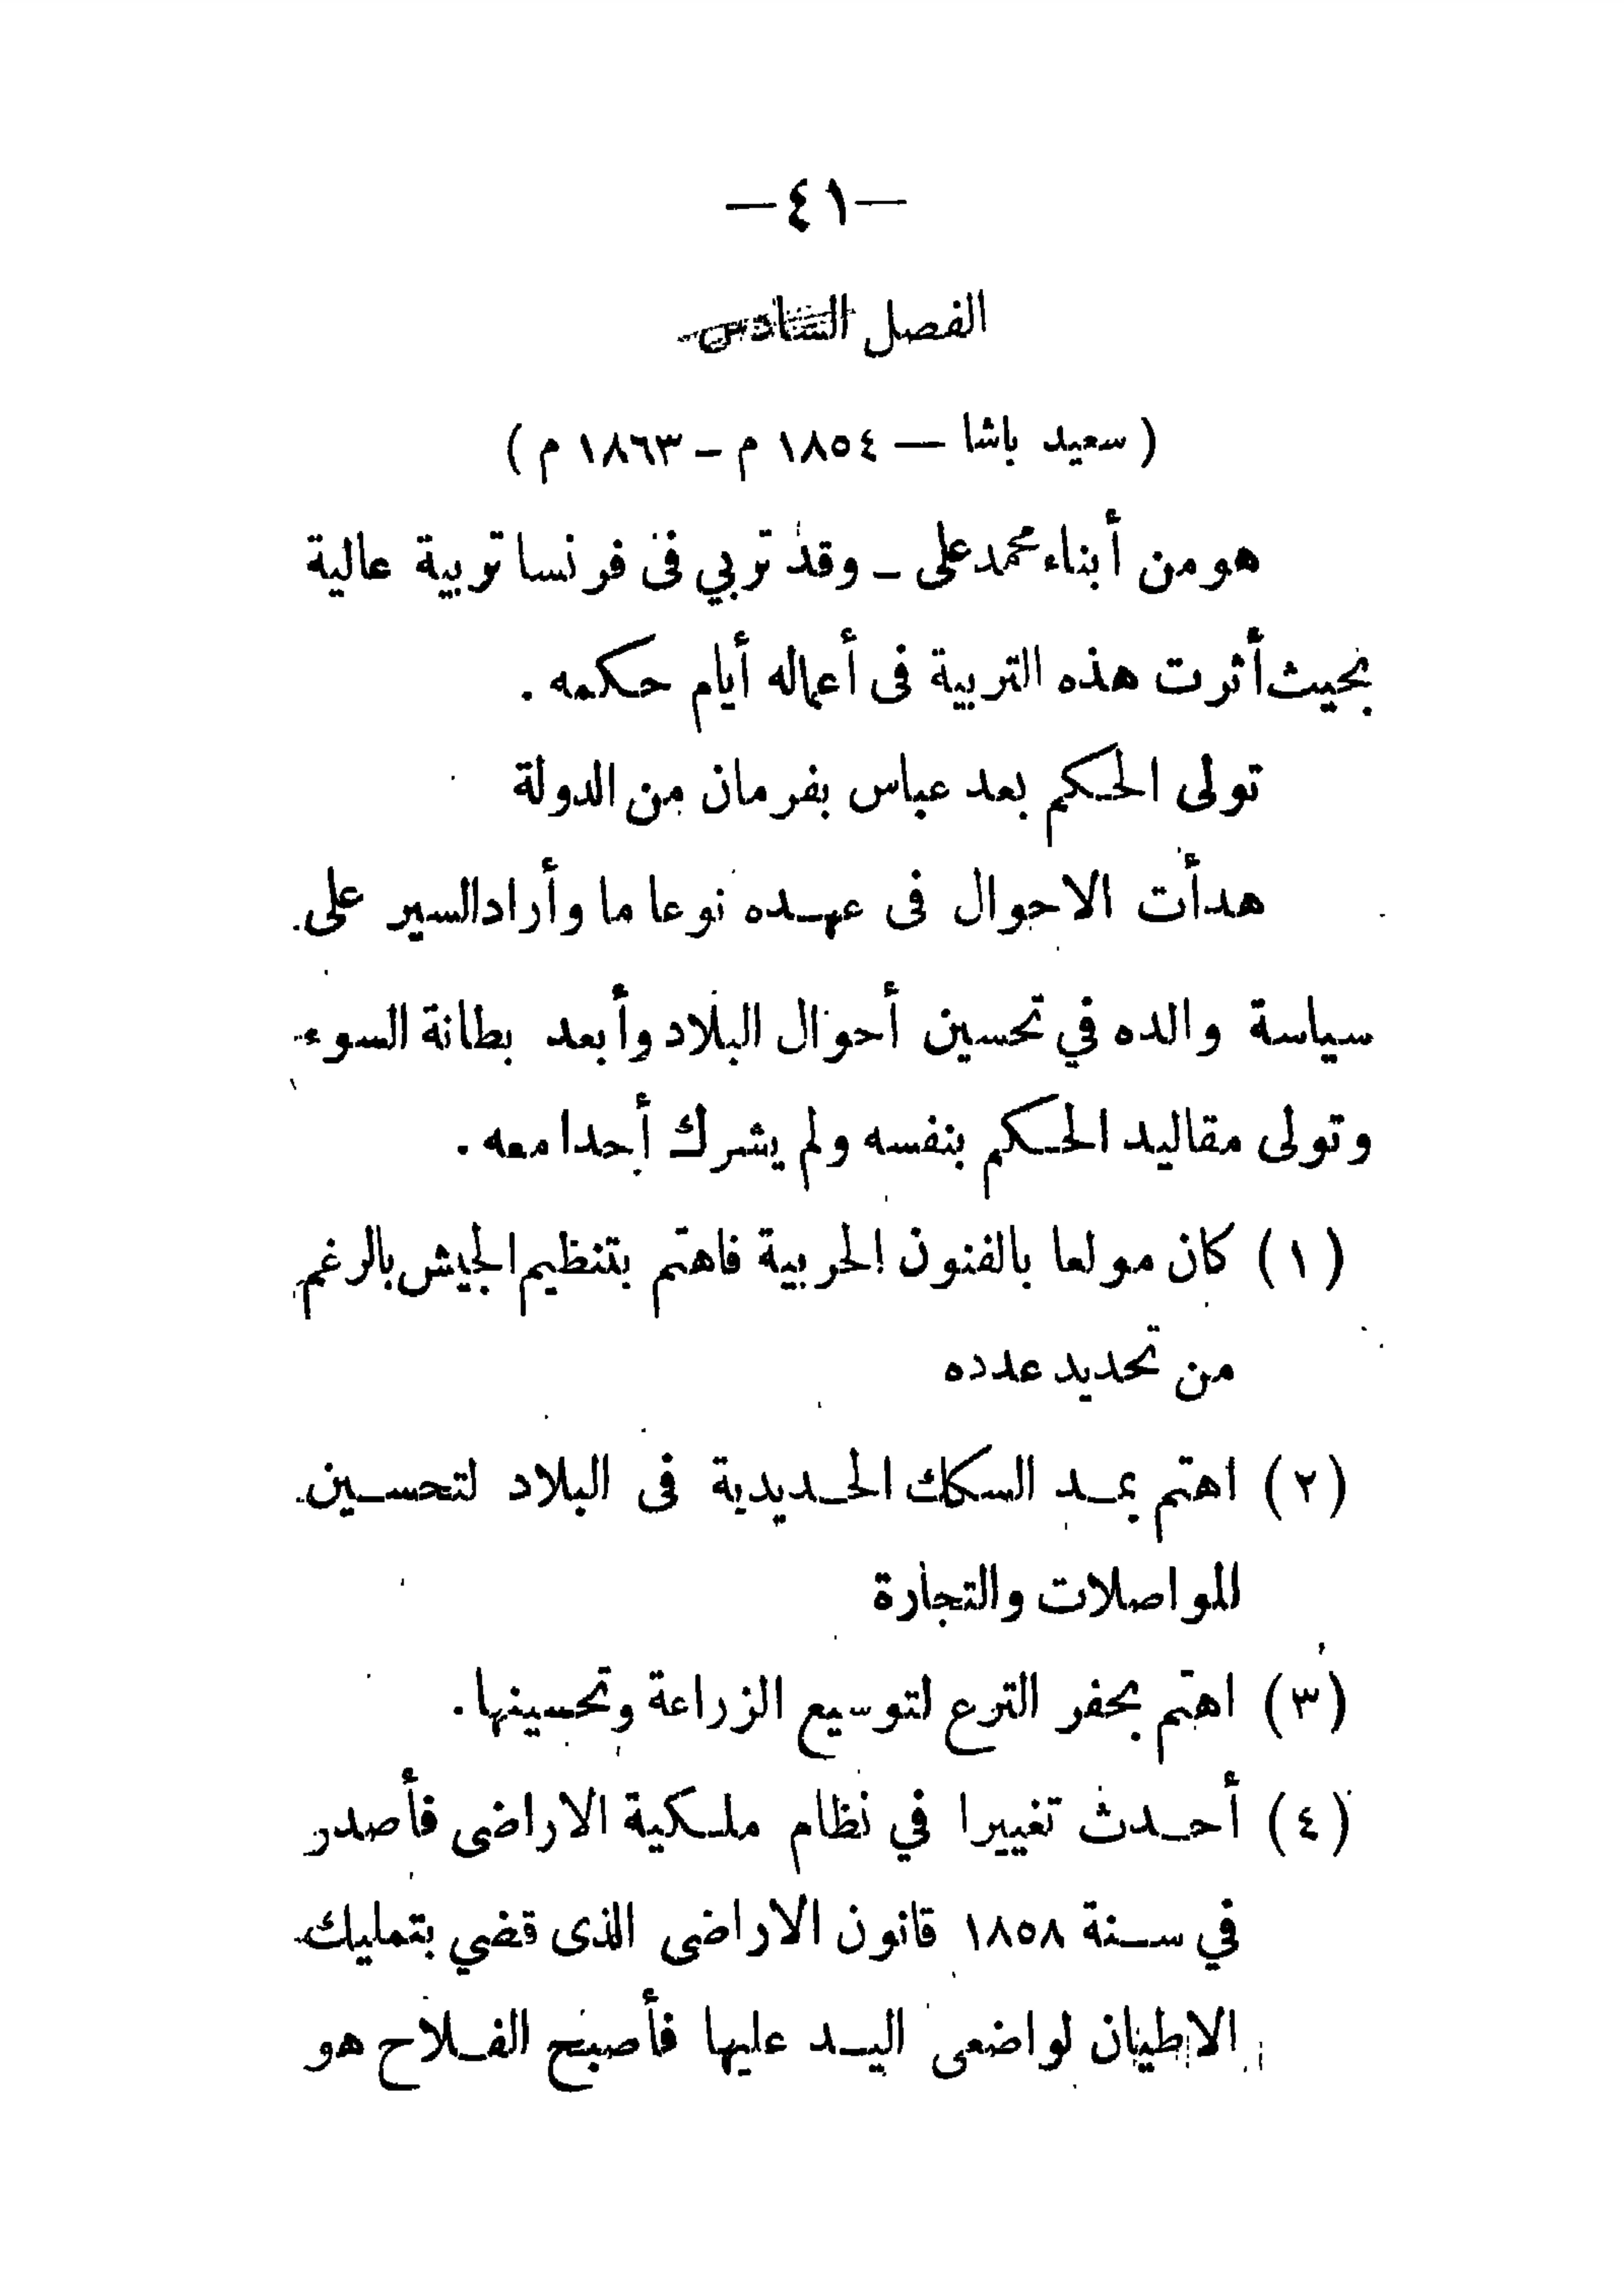 —٤١—
الفصل السادس
( سعيد باشا — ١٨٥٤ م – ١٨٦٣ م )
هو من أبناء محمد على – وقد تربي فى فرنسا تربية عالية
بحيث أثرت هذه التربية فى أعماله أيام حكمه .
تولى الحكم بعد عباس بفرمان من الدولة
هدأت الاحوال فى عهده نوعا ما وأراد السير على
سياسة والده في تحسين أحوال البلاد وأبعد بطانة السوء
وتولى مقاليد الحكم بنفسه ولم يشرك أحدا معه .
(١) كان مولعا بالفنون الحربية فاهتم بتنظيم الجيش بالرغم
من تحديد عدده
(٢) اهتم بمد السكك الحديدية فى البلاد لتحسين
المواصلات والتجارة
(٣) اهتم بحفر الترع لتوسيع الزراعة وتحسينها .
(٤) أحدث تغييرا في نظام ملكية الاراضى فأصدر
في سنة ١٨٥٨ قانون الاراضى الذى قضي بتمليك
الاطيان لواضعى اليد عليها فأصبح الفلاح هو